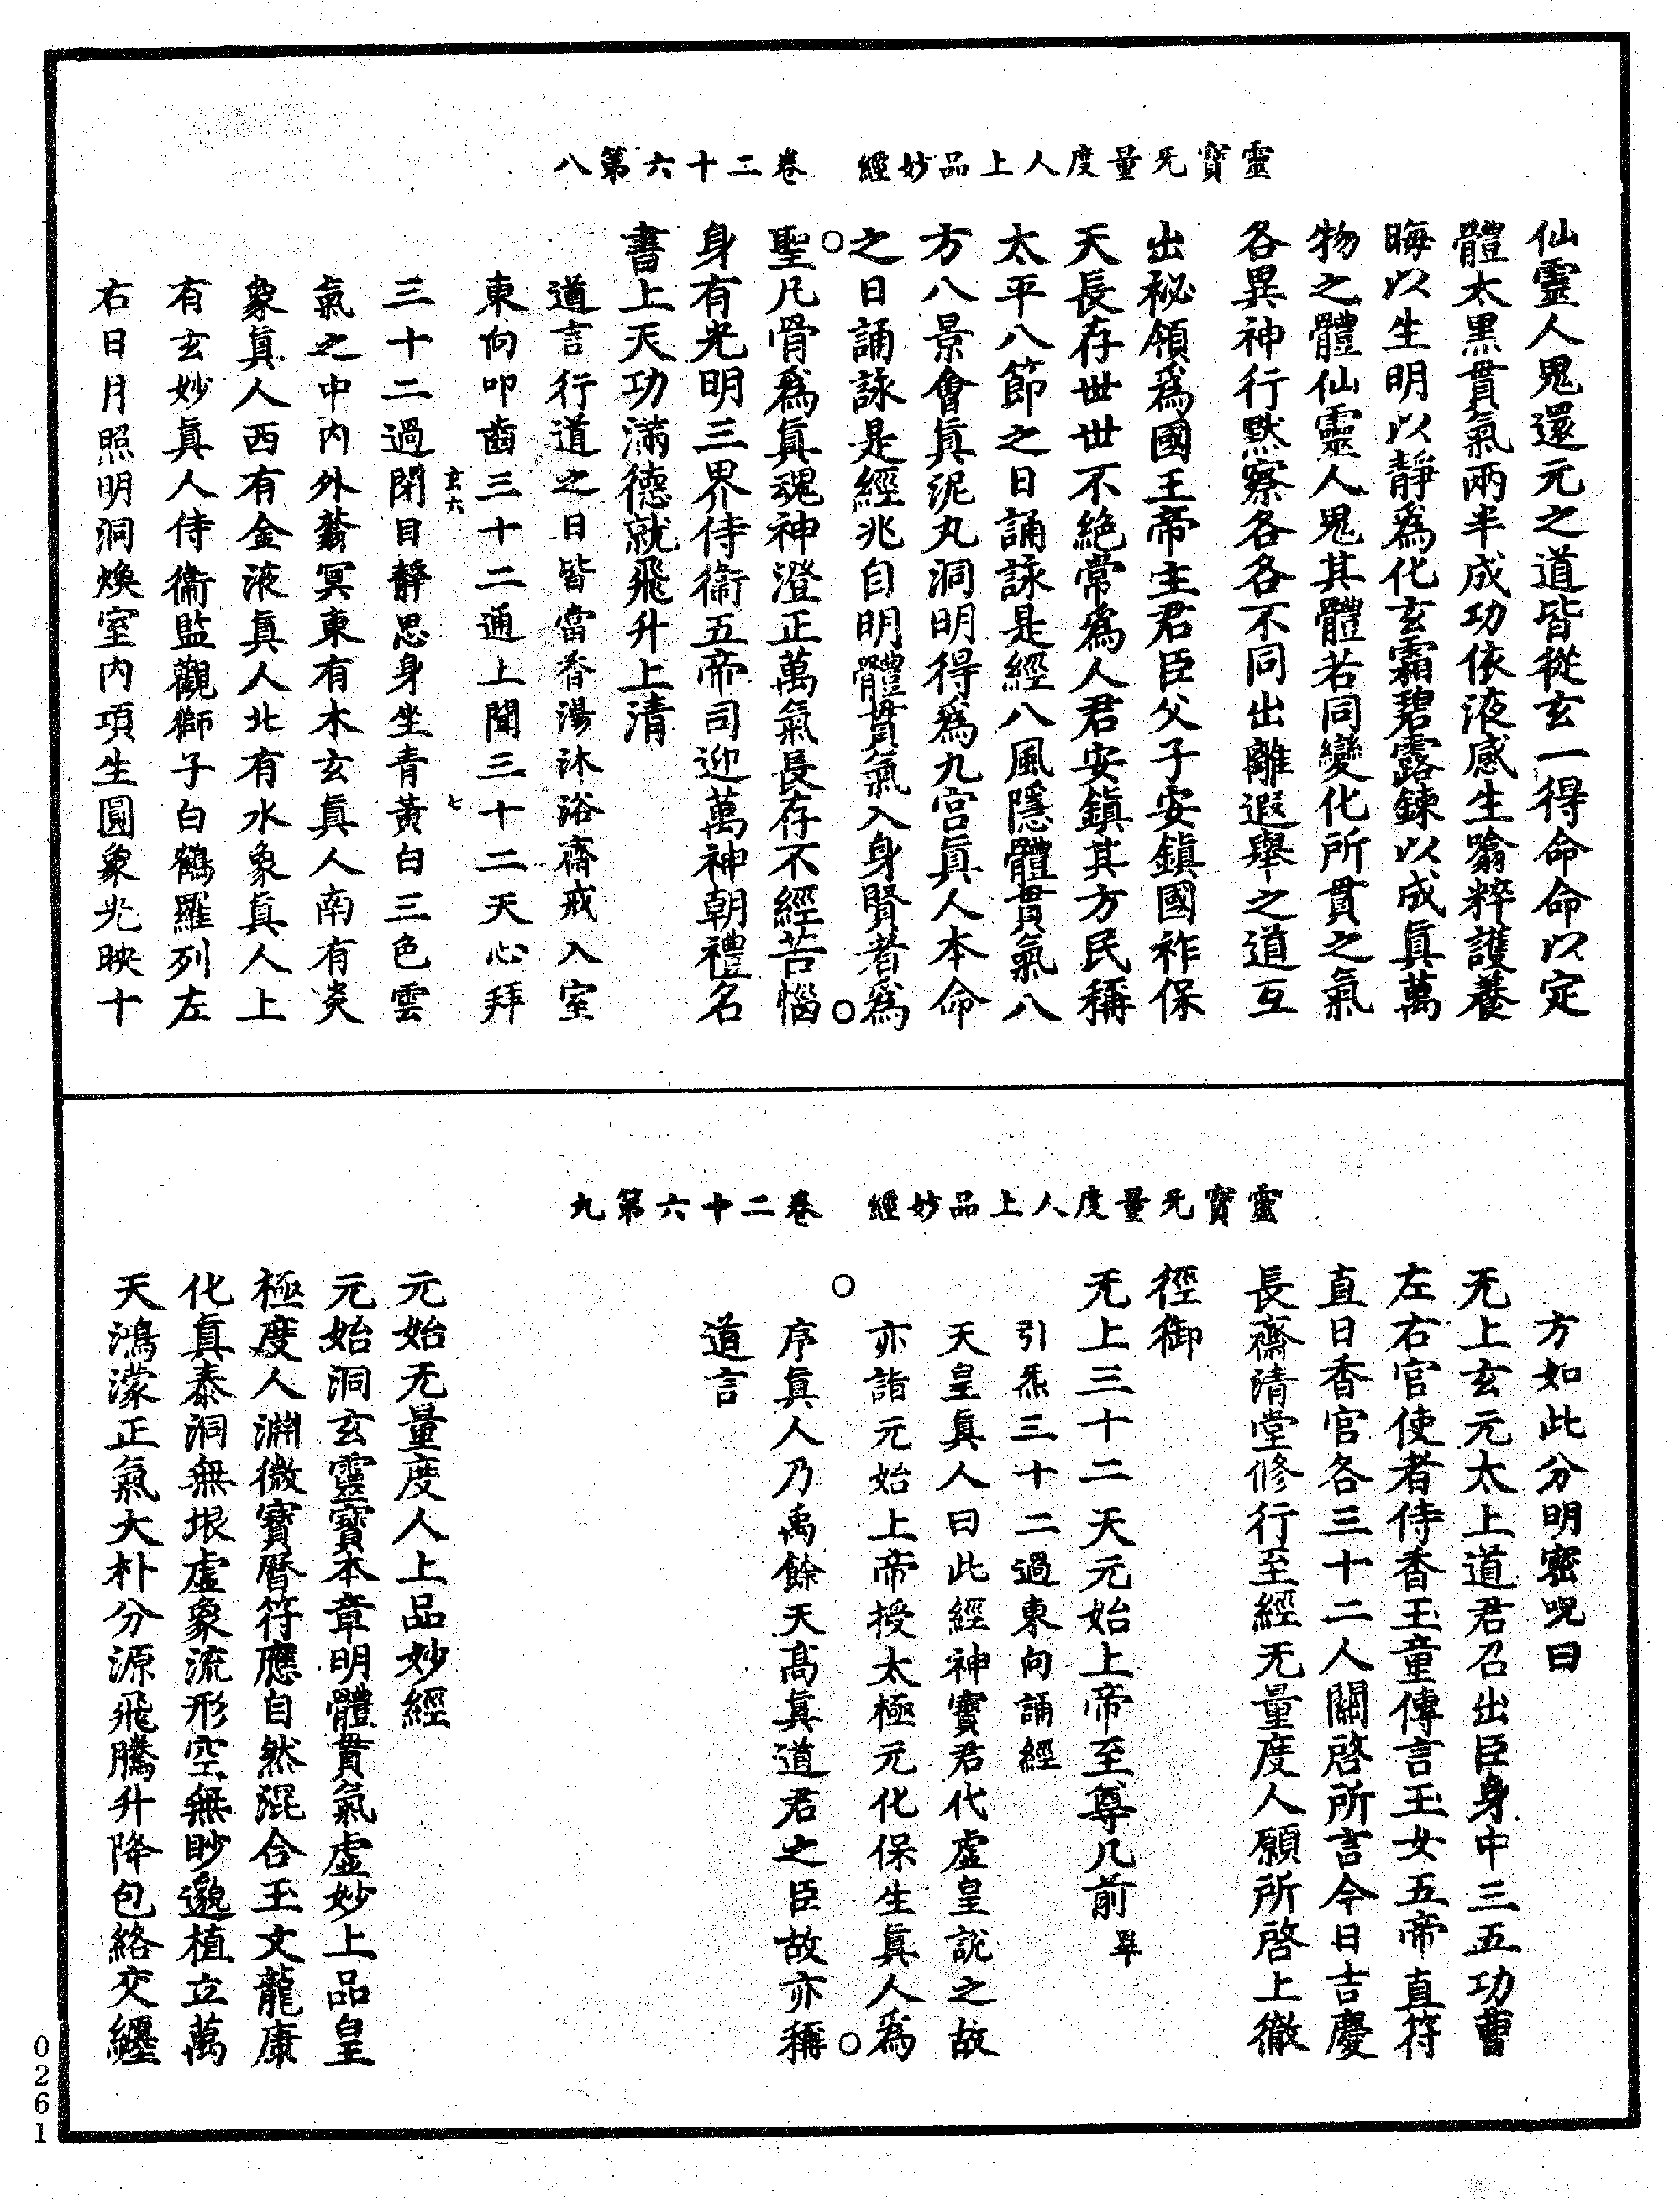 靈寶无量度人上品妙經　卷二十六第八
仙靈人鬼還元之道皆從玄一得命命以定
體太黑貫氣兩半成功依液感生噏粹護養
晦以生明以靜爲化玄霜碧露鍊以成眞萬
物之體仙靈人鬼其體若同變化所貫之氣
各異神行默察各各不同出離遐舉之道互
出祕領爲國王帝主君臣父子安鎮國祚保
天長存世世不絕常爲人君安鎮其方民稱
太平八節之日誦詠是經八風隱體貫氣八
方八景會眞泥丸洞明得爲九宮眞人本命
之日誦詠是經兆自明體貫氣入身賢者爲
聖凡骨爲眞魂神澄正萬氣長存不經苦惱
身有光明三界侍衞五帝司迎萬神朝禮名
書上天功滿德就飛升上清
道言行道之日皆當香湯沐浴齋戒入室
東向叩齒三十二通上聞三十二天心拜
玄六　七
三十二過閉目靜思身坐青黃白三色雲
氣之中內外蓊冥東有木玄眞人南有炎
象眞人西有金液眞人北有水象眞人上
有玄妙眞人侍衞監觀獅子白鶴羅列左
右日月照明洞煥室內項生圓象光映十
靈寶无量度人上品妙經　卷二十六第九
方如此分明密呪曰
无上玄元太上道君召出臣身中三五功曹
左右官使者侍香玉童傳言玉女五帝直符
直日香官各三十二人關啓所言今日吉慶
長齋清堂修行至經无量度人願所啓上徹
徑御
无上三十二天元始上帝至尊几前 畢
引炁三十二過東向誦經
天皇眞人曰此經神寶君代虛皇說之故
亦詣元始上帝授太極元化保生眞人爲
序眞人乃禹餘天高眞道君之臣故亦稱
道言
元始无量度人上品妙經
元始洞玄靈寶本章明體貫氣虛妙上品皇
極度人淵微寶曆符應自然混合玉文龍康
化眞泰洞無垠虛象流形空無眇邈植立萬
天鴻濛正氣大朴分源飛騰升降包絡交纏
0261